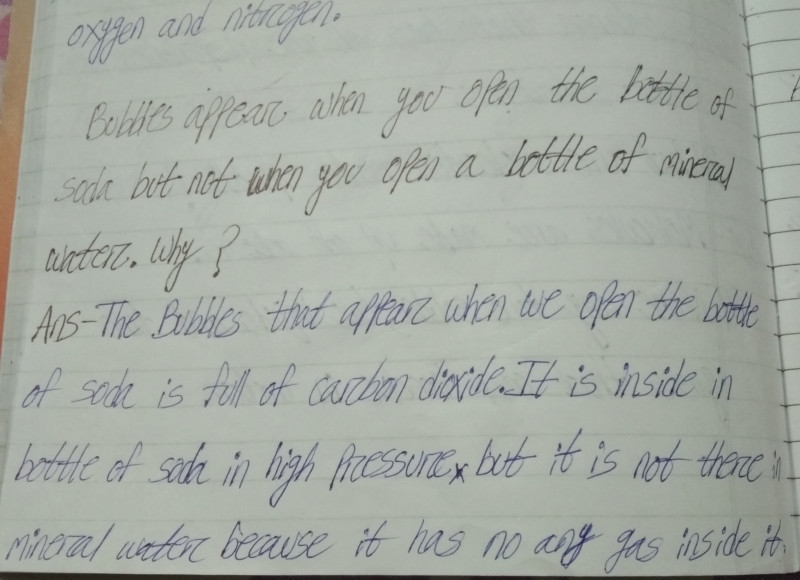 oxygen and nitrogen.
Bubbles appear when you open the bottle of
soda but not when you open a bottle of mineral
water. Why?
Ans-The Bubbles that appear when we open the bottle
of soda is full of carbon dioxide. It is inside in
bottle of soda in high pressure, but it is not there in
mineral water because it has no any gas inside it.